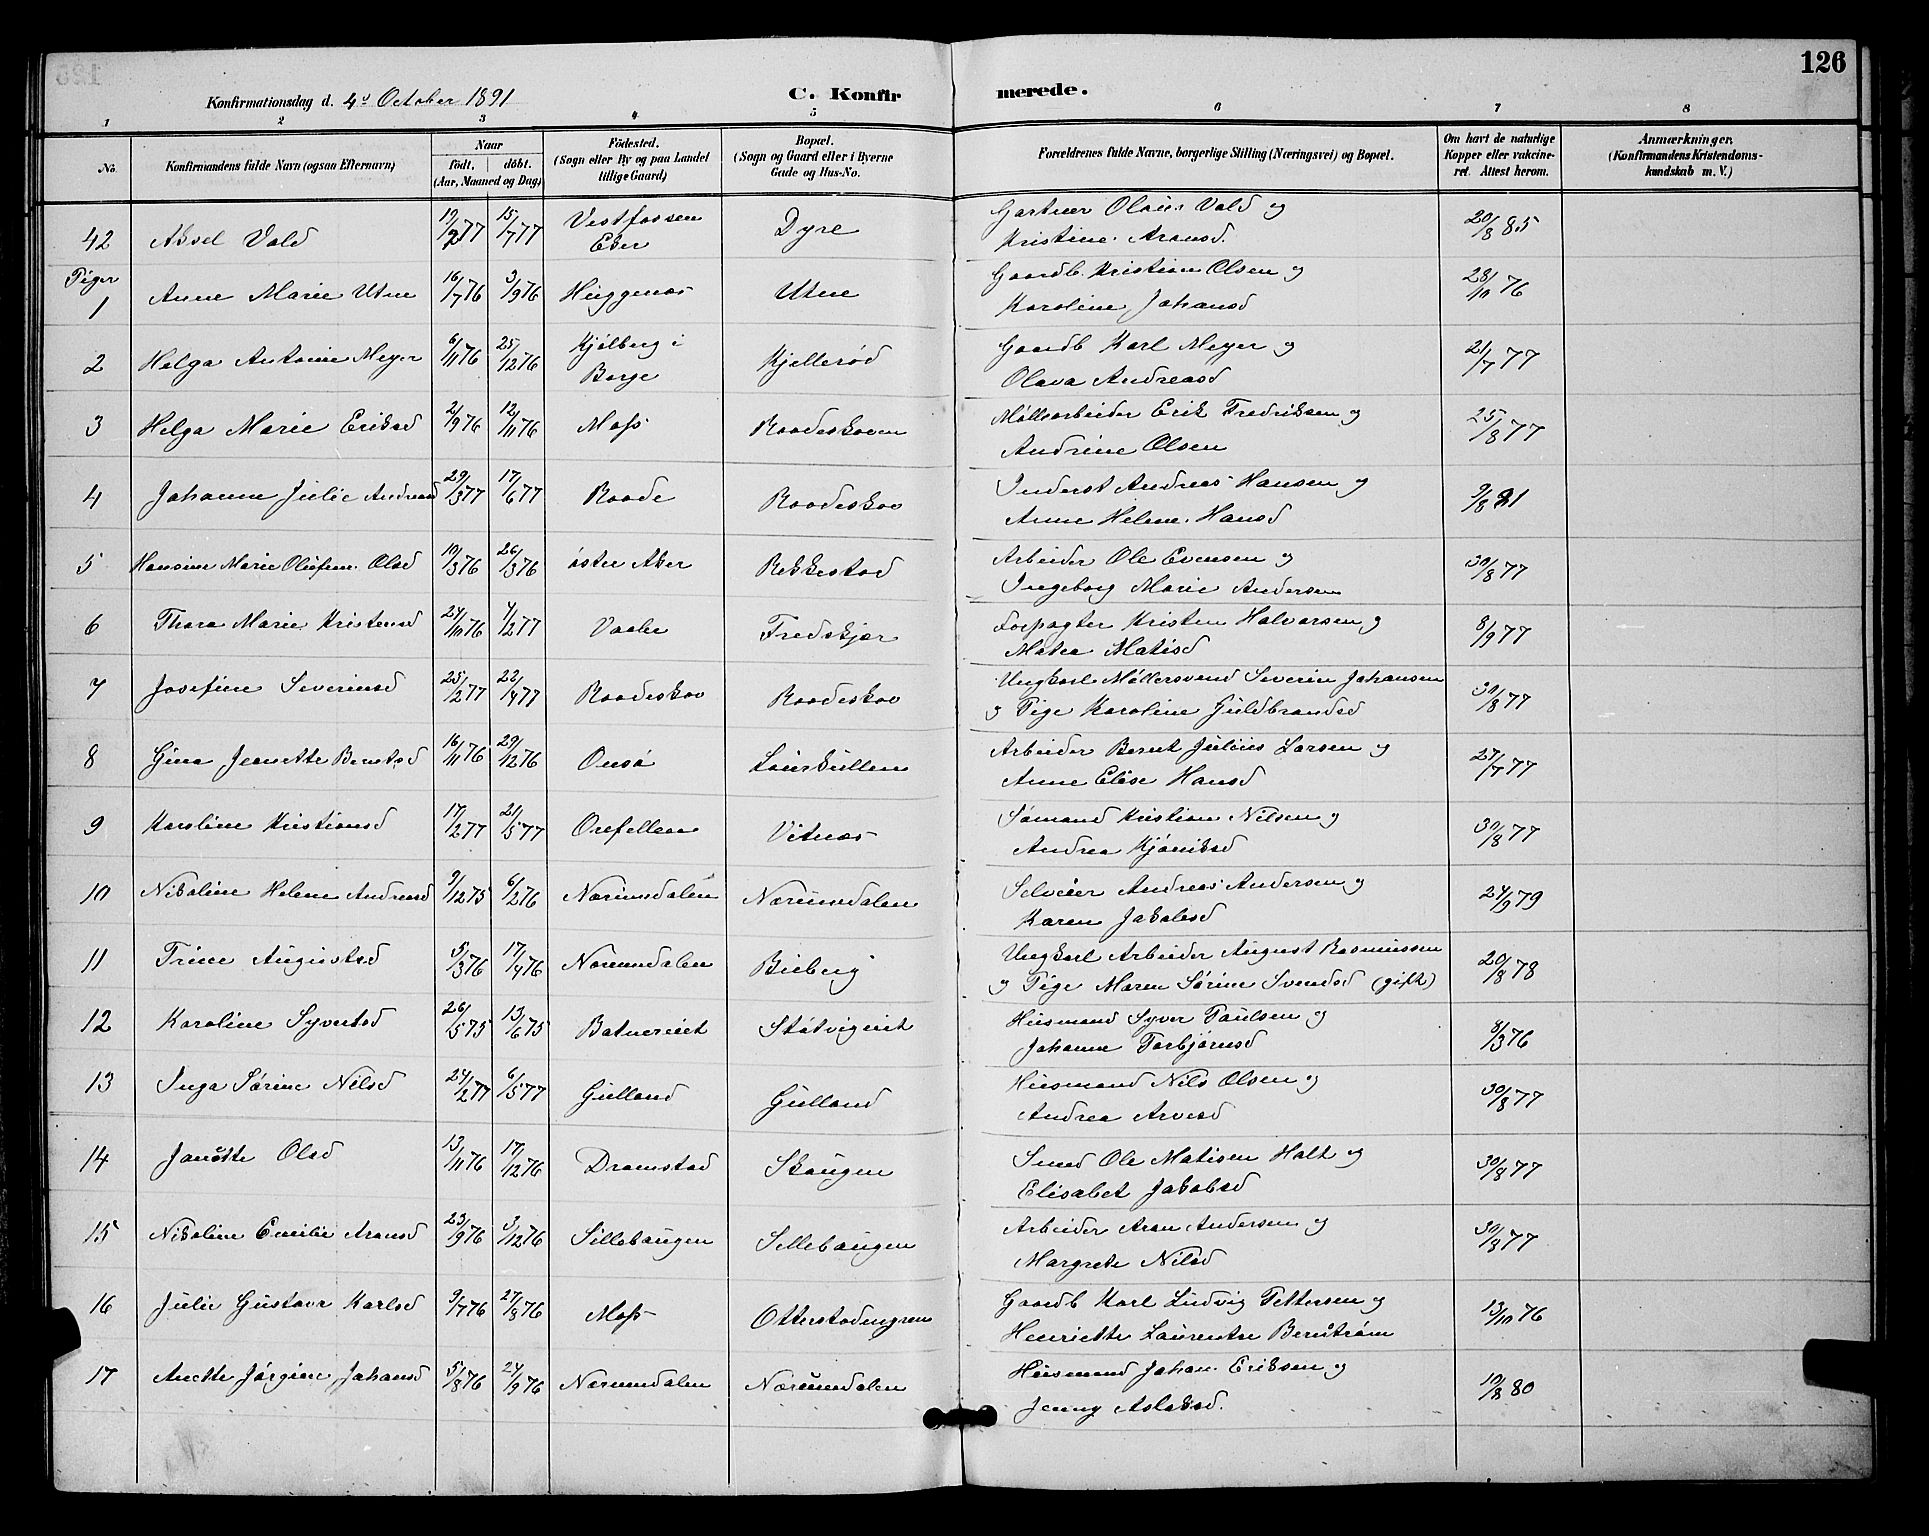 126
Konfirmationsdag d. 4d October 1891 C. Konfirmerede.
1 2 3 4 5 6 7 8
No. Konfirmandens fulde Navn (ogsaa Efternavn) Naar født, døbt. (Aar, Maaned og Dag) Fødested. (Sogn eller By og paa Landet tillige Gaard) Bopæl. (Sogn og Gaard eller i Byerne Gade og Hus-No. Forældrenes fulde Navne, borgerlige Stilling (Næringsvei) og Bopæl. Om havt de naturlige Kopper eller vakcineret. Attest herom. Anmærkninger. (Konfirmandens Kristendomskundskab m. V.)
42 Aksel Vold 19/2 77 15/7 77 Vestfossen Eker Dyre Gartner Olaus Vold og Kristine Aronsd. 20/8 85
Piger
1 Anne Marie Utne 16/7 76 3/9 76 Huggenæs Utne Gaardb. Kristian Olsen og Karoline Johansd 28/10 76
2 Helga Antonie Meyer 6/11 76 25/12 76 Kjølberg i Borge Kjellerød Gaardb Karl Meyer og Olava Andreasd 21/7 77
3 Helga Marie Eriksd 2/9 76 12/11 76 Moss Raadeskoven Møllearbeider Erik Fredriksen og Andrine Olsen 25/8 77
4 Johanne Julie Andreasd 29/3 77 17/6 77 Raade Raadeskov Inderst Andreas Hansen og Anne Helene Hansd 9/8 81
5 Hansine Marie Olufine Olsd 10/3 76 26/3 76 øster Aker Rekkestad Arbeider Ole Evensen og Ingeborg Marie Andersen 30/8 77
6 Thora Marie Kristensd 24/10 76 4/2 77 Vaaler Fredskjær Forpagter Kristen Halvorsen og Matea Matisd 8/9 77
7 Josefine Severinsd 25/2 77 22/4 77 Raadeskov Raadeskov Ungkarl Møllersvend Severin Johansen og Pige Karoline Guldbrandsd 30/8 77
8 Gina Jeanette Berntsd 16/11 76 29/12 76 Onsø Laurkullen Arbeider Bernt Julius Larsen og Anne Elise Hansd 27/7 77
9 Karoline Kristiansd 17/2 77 21/5 77 Orefellene Vitnæs Sømand Kristian Nilsen og Andrea Kjøniksd 30/8 77
10 Nikoline Helene Andreasd 9/12 75 6/2 76 Nærumsdalen Nærumsdalen Selveier Andreas Andersen og Karen Jakobsd 24/9 79
11 Trine Augustsd 5/3 76 17/4 76 Nærumsdalen Bieberg Ungkarl Arbeider August Rasmussen og Pige Maren Sørine Svendsd (gift) 20/8 78
12 Karoline Syvertsd 26/5 75 13/6 75 Batnereiet Støtvigeiet Husmand Syver Paulsen og Johanne Torbjørnsd 8/3 76
13 Inga Sørine Nilsd 24/2 77 6/5 77 Gulland Gulland Husmand Nils Olsen og Andrea Arvesd 30/8 77
14 Janette Olsd 13/11 76 17/12 76 Dramstad Skaugen Smed Ole Matisen Holt og Elisabet Jakobsd 30/8 77
15 Nikoline Emilie Aronsd 23/9 76 3/12 76 Sillebaugen Sillebaugen Arbeider Aron Andersen og Margrete Nilsd 30/8 77
16 Julie Gustava Karlsd 9/7 76 27/8 76 Moss Otterstadengren Gaardb Karl Ludvig Pettersen og Henriette Laurentse Bernstrøm 13/10 76
17 Anette Jørgine Johansd 5/8 76 24/9 76 Nærumsdalen Nærumsdalen Husmand Johan Eriksen og Jenny Aslaksd. 10/8 80